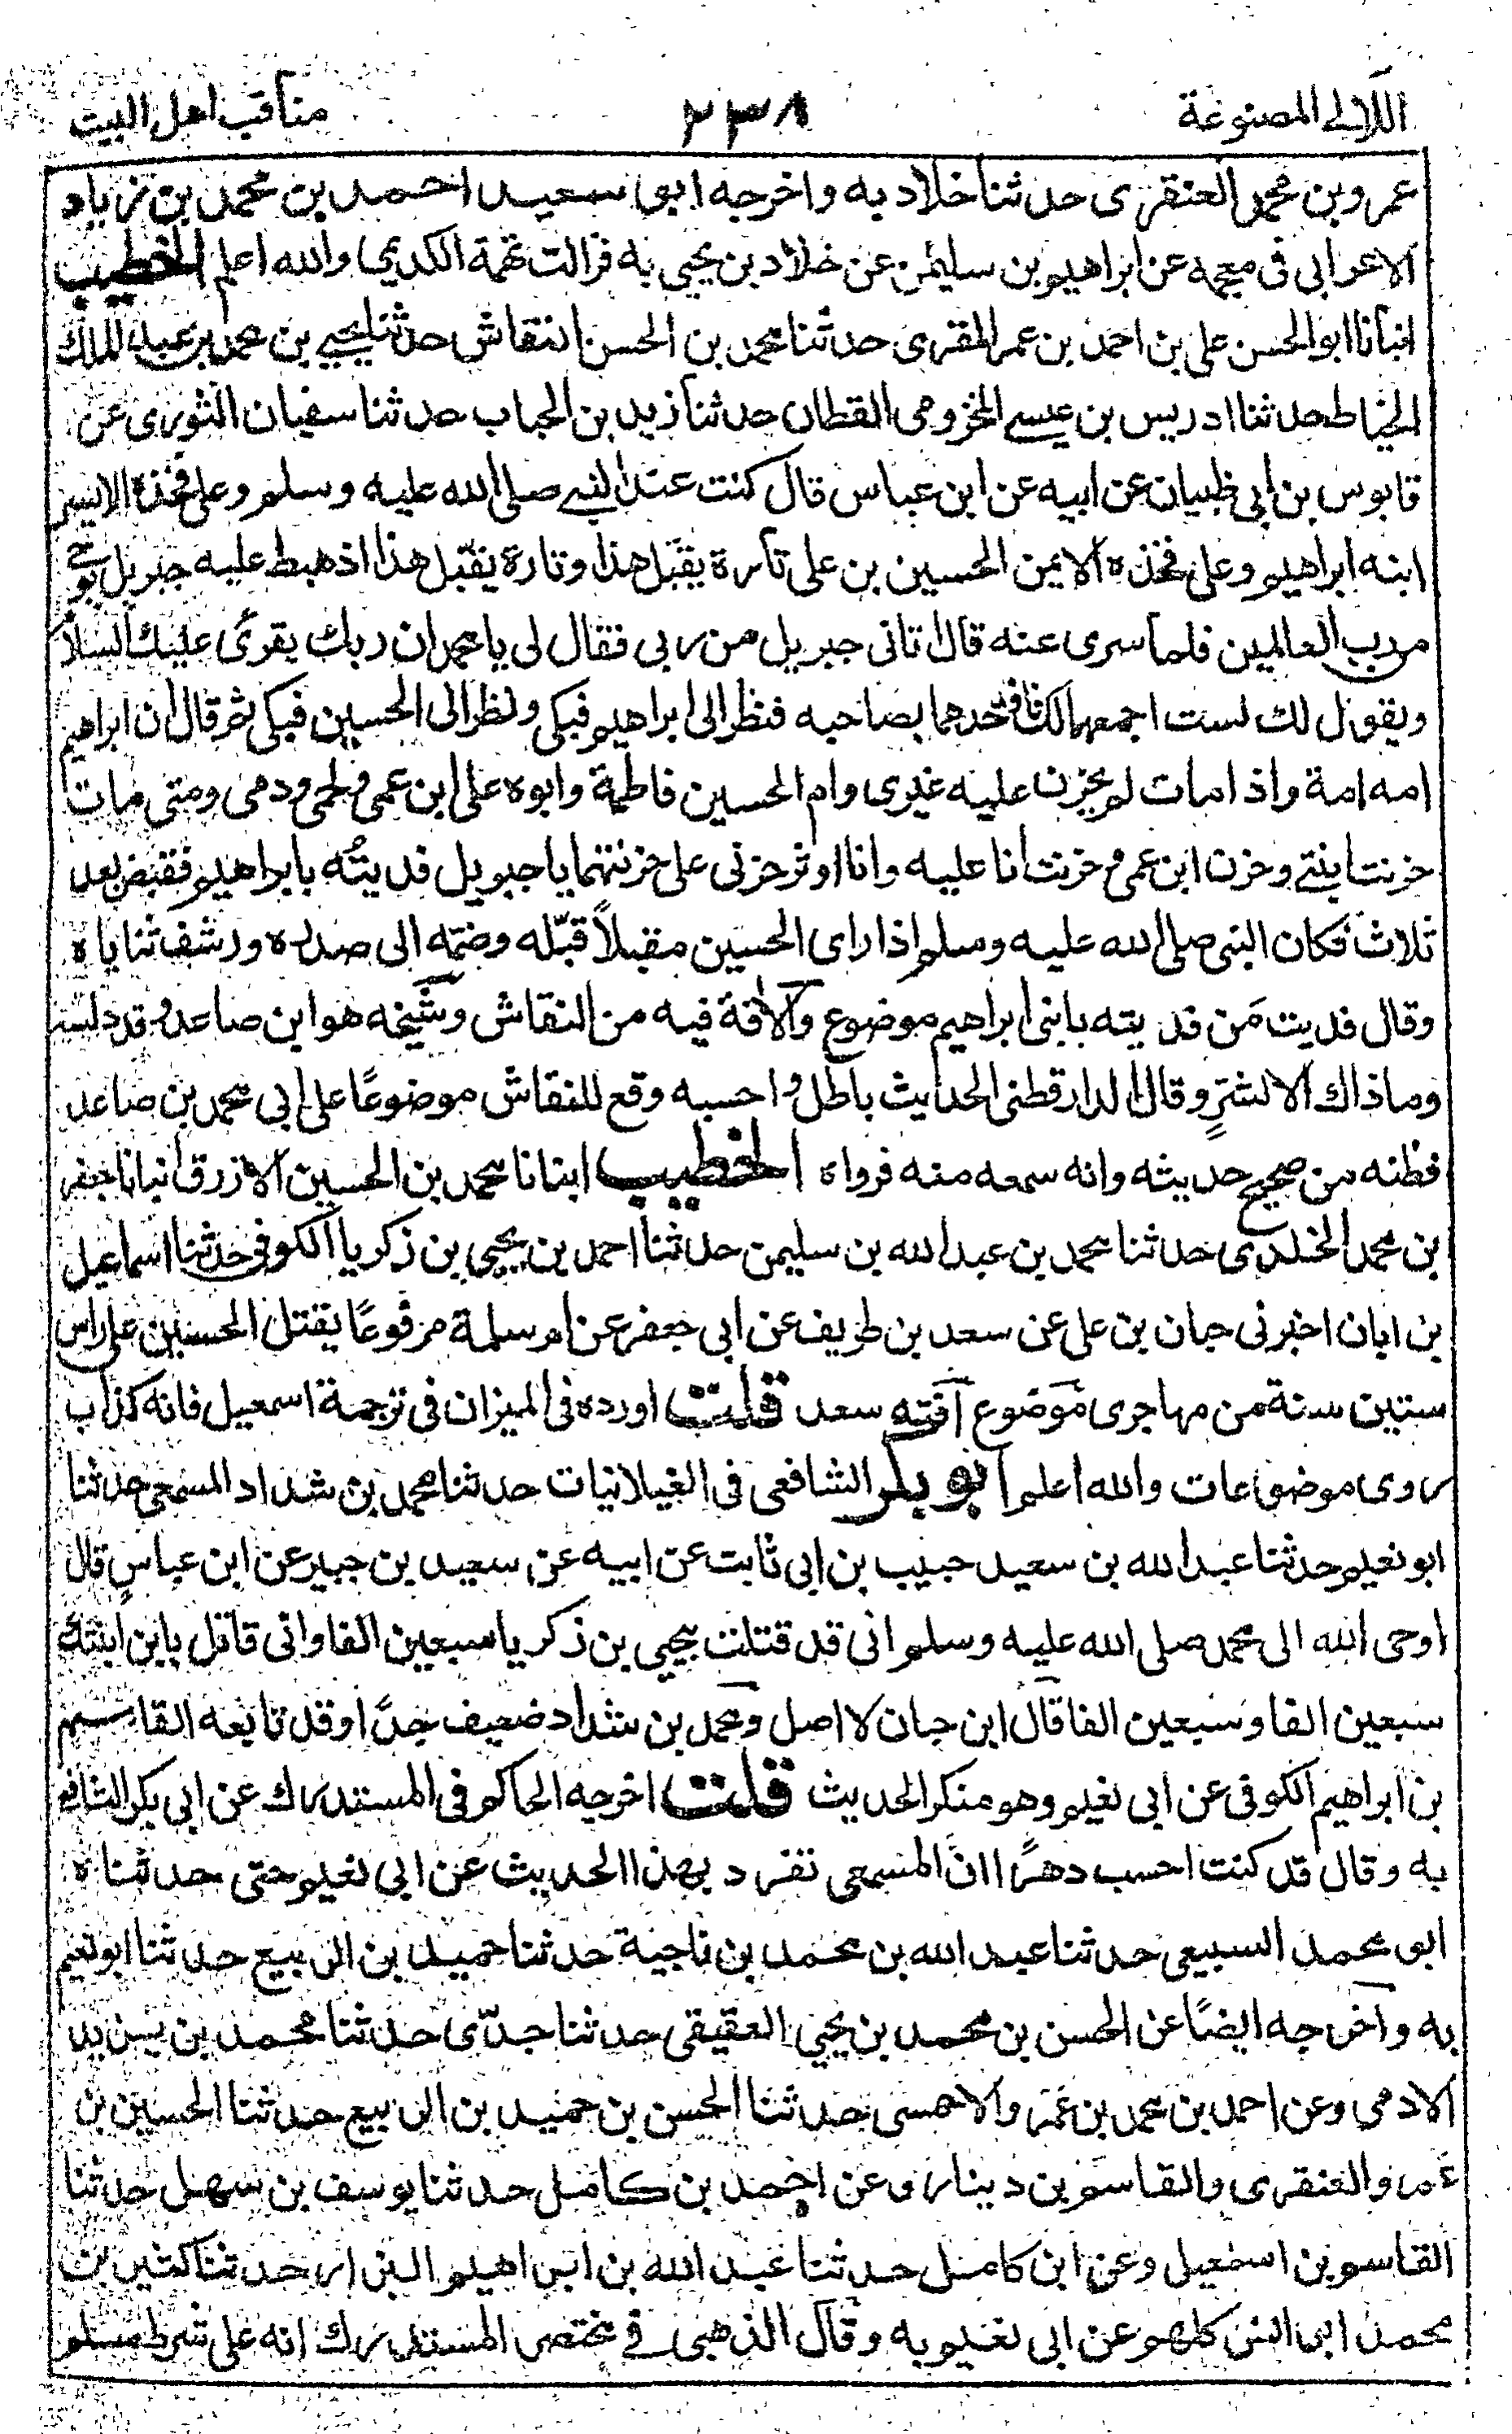 اللآلى المصنوعة ٢٣٨ مناقب اهل البيت
عمرو بن محمد العنقزى حدثنا خلاد به واخرجه ابو سعيد احمد بن محمد بن زياد
الاعرابى فى معجمه عن ابراهيم بن سليمن عن خلاد بن يحيى به فزالت تهمة الكديمى والله اعلم الخطيب
انبأنا ابو الحسن على بن احمد بن عمر المقرى حدثنا محمد بن الحسن النقاش حدثنا يحيى بن محمد بن عبد الملك
الخياط حدثنا ادريس بن عيسى المخزومى القطان حدثنا زيد بن الحباب حدثنا سفيان الثورى عن
قابوس بن ابى ظبيان عن ابيه عن ابن عباس قال كنت عند النبى صلى الله عليه وسلم وعلى فخذه الايسر
ابنه ابراهيم وعلى فخذه الايمن الحسين بن على تارة يقبل هذا وتارة يقبل هذا اذ هبط عليه جبريل بوحى
من رب العالمين فلما سرى عنه قال اتانى جبريل من ربى فقال لى يا محمد ان ربك يقرئ عليك السلام
ويقول لك لست اجمعهما لك فافد احدهما بصاحبه فنظر الى ابراهيم فبكى ونظر الى الحسين فبكى ثم قال ان ابراهيم
امه امة واذا مات لم يحزن عليه غيرى وام الحسين فاطمة وابوه على ابن عمى ولحمى ودمى ومتى مات
حزنت ابنتى وحزن ابن عمى وحزنت انا عليه وانا اوثر حزنى على حزنهما يا جبريل فديته بابراهيم فقبض بعد
ثلاث فكان النبى صلى الله عليه وسلم اذا راى الحسين مقبلاً قبّله وضمّه الى صدره ورشف ثناياه
وقال فديت مَن فديته بابنى ابراهيم موضوع والآفة فيه من النقاش وشيخه هو ابن صاعد وقد دلسه
وما ذاك الا لشرٍ وقال الدارقطنى الحديث باطل واحسبه وقع للنقاش موضوعًا على ابى محمد بن صاعد
فظنه من صحيح حديثه وانه سمعه منه فرواه الخطيب انبانا محمد بن الحسين الازرق انبانا جعفر
بن محمد الخلدى حدثنا محمد بن عبد الله بن سليمن حدثنا احمد بن يحيى بن زكريا الكوفى حدثنا اسماعيل
بن ابان اخبرنى حبان بن على عن سعد بن طريف عن ابى جعفر عن ام سلمة مرفوعًا يقتل الحسين على راس
ستين سنة من مهاجرى موضوع آفته سعد قلت اورده فى الميزان فى ترجمة اسمعيل فانه كذاب
روى موضوعات والله اعلم ابو بكر الشافعى فى الغيلانيات حدثنا محمد بن شداد المسمعى حدثنا
ابو نعيم حدثنا عبد الله بن سعيد حبيب بن ابى ثابت عن ابيه عن سعيد بن جبير عن ابن عباس قال
اوحى الله الى محمد صلى الله عليه وسلم انى قد قتلت بيحيى بن زكريا سبعين الفا وانى قاتل بابن ابنتك
سبعين الفا وسبعين الفا قال ابن حبان لا اصل ومحمد بن شداد ضعيف جدًا وقد تابعه القاسم
بن ابراهيم الكوفى عن ابى نعيم وهو منكر الحديث قلت اخرجه الحاكم فى المستدرك عن ابى بكر الشافعى
به وقال قد كنت احسب دهرًا ان المسمعى تفرد بهذا الحديث عن ابى نعيم حتى حدثناه
ابو محمد السبيعى حدثنا عبد الله بن محمد بن ناجية حدثنا حميد بن الربيع حدثنا ابو نعيم
به واخرجه ايضًا عن الحسن بن محمد بن يحيى العقيقى حدثنا جدّى حدثنا محمد بن يزيد
الادمى وعن احمد بن محمد بن عمرو الاحمسى حدثنا الحسن بن حميد بن الربيع حدثنا الحسين بن
عمرو العنقزى والقاسم بن دينار وعن احمد بن كامل حدثنا يوسف بن سهل حدثنا
القاسم بن اسمعيل وعن ابن كامل حدثنا عبد الله بن ابراهيم البزار حدثنا كثير بن
محمد ابو انس كلهم عن ابى نعيم به وقال الذهبى فى مختصر المستدرك انه على شرط مسلم